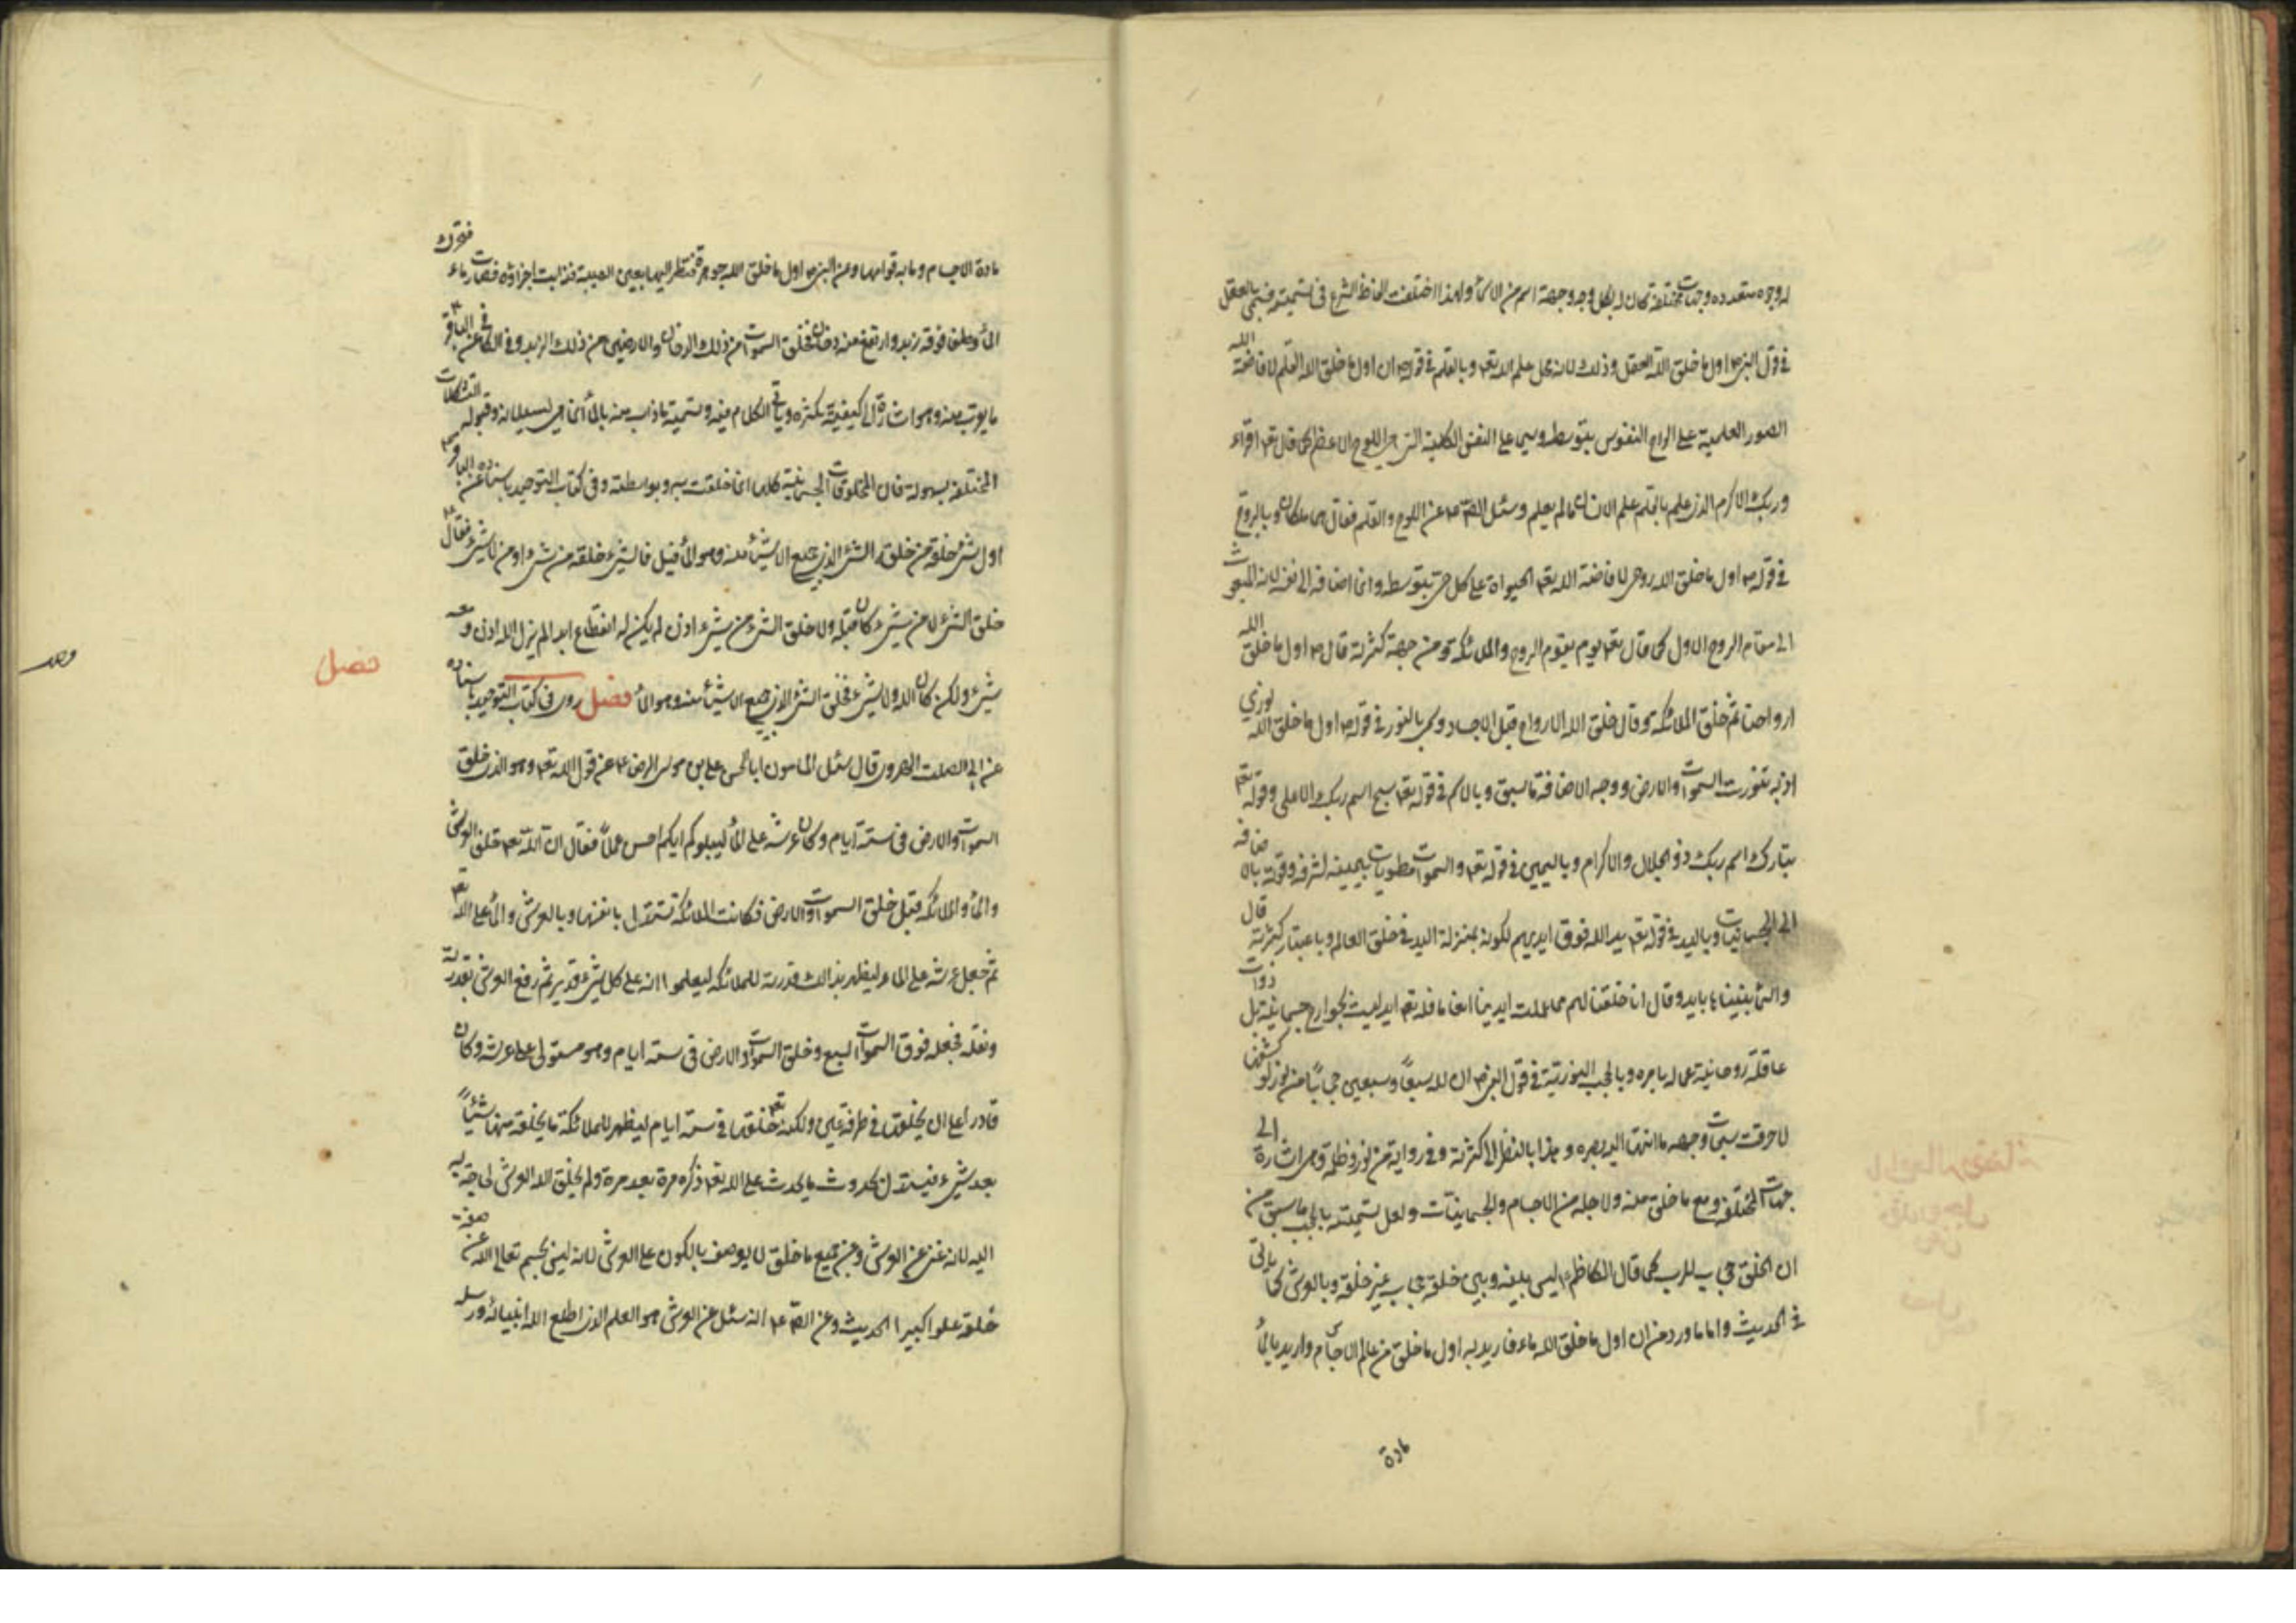 له وجوه متعدده وجهات مختلفة كان له بكل وجه وجهة اسم من الاسماء ولهذا اختلفت الفاظ الشرع فى تسميته فسمى بالعقل
فى قول النبى ص اول ما خلق الله العقل وذلك لانه محل علم الله تعم وبالقلم فى قوله ص ان اول ما خلق الله القلم لافاضة الله
الصور العلمية على الواح النفوس بتوسطه وسيما على النفس الكلية التى هى اللوح الاعظم كما قال تعم اقراء
وربك الاكرم الذى علم بالقلم علم الانسان ما لم يعلم وسئل الصم عم عن اللوح والقلم فقال هما ملكان وبالروح
فى قوله ص اول ما خلق الله روحى لافاضة الله تعم الحيواة على كل حى بتوسطه وانما اضافه الى نفسه لانه المبعوث
الى مقام الروح الاول كما قال تعم يوم يقوم الروح والملائكة ومن جهة كثرته قال ص اول ما خلق الله
ارواحنا ثم خلق الملائكة وقال خلق الله الارواح قبل الاجساد وسمى بالنور فى قوله ص اول ما خلق الله نورى
اذ به تنورت السموات والارض ووجه الاضافة ما سبق وبالاسم فى قوله تعم سبح اسم ربك الاعلى وقوله تعم
تبارك اسم ربك ذو الجلال والاكرام وباليمين فى قوله تعم والسموات مطويات بيمينه لشرفه وقوته بالاضافة
الى الجسمانيات وباليد فى قوله تعم يد الله فوق ايديهم لكونه بمنزلة اليد فى خلق العالم وباعتبار كثرته قال
والسماء بنيناها بايد وقال انا خلقنا لهم مما عملت ايدينا انعاما فله تعم ايد ليست بجوارح جسمانية بل ذوات
عاقلة روحانية عماله بامره وبالحجب النورية فى قول النبى ص ان لله سبعاً وسبعين حجاباً من نور لو كشفها
لاحرقت سبحات وجهه ما انتهى اليه بصره وهذا بالنظر الى كثرته وفى رواية من نور وظلمة وهى اشارة الى
جهات المختلفة ومع ما خلق منه ولاجله من الاجسام والجسمانيات ولعل تسميته بالحجب ما سبق من
ان الخلق حجاب للرب كما قال الكاظم عم ليس بينه وبين خلقه حجاب غير خلقه وبالعرش كما ياتى
فى الحديث واما ما ورد من ان اول ما خلق الله ماء فاريد به اول ما خلق من عالم الاجسام واريد بالماء
مادة
مادة الاجسام وما به قوامها وعن النبى ص اول ما خلق الله جوهرة فنظر اليها بعين الهيبة فذابت اجزاؤه فصارت ماء فتحرك
الماء وطفى فوقه زبد وارتفع منه دخان فخلق السموات من ذلك الدخان والارضين من ذلك الزبد وفى الكافى عن الباقر عم
ما يقرب منه وهو اشارة الى كيفية تكثره وياتى الكلام فيه وتسمية ما ذاب منه بالماء انما هى لسيلانه وقبوله التشكلات
المختلفة بسهولة فان المخلوقات الجسمانية كلها انما خلقت به وبواسطته وفى كتاب التوحيد باسناده عن الباقر عم
اول شئ خلقه من خلقه الشئ الذى جميع الاشياء منه وهو الماء قيل فالشئ خلقه من شئ او من لا شئ فقال عم
خلق الشئ لا من شئ كان قبله ولو خلق الشئ من شئ اذن لم يكن له انقطاع ابدا لم يزل الله اذن ومعه
شئ ولكن كان الله ولا شئ فخلق الشئ الذى جميع الاشياء منه وهو الماء فصل روى فى كتاب التوحيد باسناده
فصل
عن ابى الصلت الهروى قال سئل المامون ابا الحسن على بن موسى الرضا عم عن قول الله تعم وهو الذى خلق
السموات والارض فى ستة ايام وكان عرشه على الماء ليبلوكم ايكم احسن عملاً فقال ان الله تعم خلق العرش
والماء والملائكة قبل خلق السموات والارض فكانت الملائكة تستدل بانفسها وبالعرش والماء على الله تعم
ثم جعل عرشه على الماء ليظهر بذالك قدرته للملائكة ليعلموا انه على كل شئ قدير ثم رفع العرش بقدرته
ونقله فجعله فوق السموات السبع وخلق السموات والارض فى ستة ايام وهو مستولى على عرشه وكان
قادرا على ان يخلقها فى طرفة عين ولكنه تعم خلقها فى ستة ايام ليظهر للملائكة ما يخلقه منها شيئاً
بعد شئ فيستدل بحدوث ما يحدث على الله تعم ذكره مرة بعد مرة ولم يخلق الله العرش لحاجة به
اليه لانه غنى عن العرش وعن جميع ما خلق لا يوصف بالكون على العرش لانه ليس بجسم تعالى الله عن صفة
خلقه علوا كبيرا الحديث وعن الصم عم انه سئل عن العرش هو العلم الذى اطلع الله انبيائه ورسله